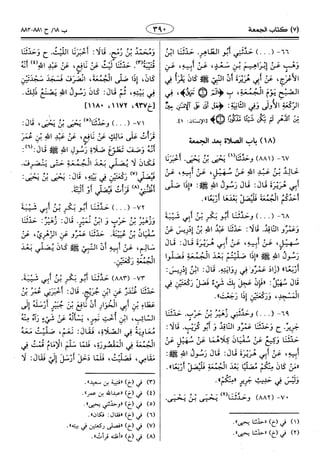 (٧) كتاب الجمعة
٣٩٠
ب ١٨/ ح ٨٨١-٨٨٢
٦٦- (...) حدثني أبو الطاهر. حدثنا ابن
وهب عن إبراهيم بن سعد، عن أبيه، عن
الأعرج، عن أبي هريرة أن النبي ﷺ كان يقرأ في
الصبح يوم الجمعة، ب
الركعة الأولى وفي الثانية:
(١٨) باب الصلاة بعد الجمعة
٦٧- (٨٨١) وحدثنا يحيى بن يحيى. أخبرنا
خالد بن عبد الله عن سهيل، عن أبيه، عن
أبي هريرة قال: قال رسول الله ﷺ: «إذا صلى
أحدكم الجمعة فليصل بعدها أربعا».
٦٨- (...) حدثنا أبو بكر بن أبي شيبة
وعمرو الناقد. قالا: حدثنا عبد الله بن إدريس عن
سهيل، عن أبيه، عن أبي هريرة قال: قال
رسول الله ﷺ: «إذا صليتم بعد الجمعة فصلوا
أربعا» (زاد عمرو في روايته. قال ابن إدريس:
قال سهيل: «فإن عجل بك شيء فصل ركعتين في
المسجد، وركعتين إذا رجعت».
٦٩- (...) وحدثني زهير بن حرب. حدثنا
جرير. ح وحدثنا عمرو الناقد وأبو كريب. قالا:
حدثنا وكيع عن سفيان كلاهما عن سهيل، عن
أبيه، عن أبي هريرة قال: قال رسول الله ﷺ:
«من كان منكم مصليا بعد الجمعة فليصل أربعا».
وليس في حديث جرير «منكم».
٧٠- (٨٨٢) وحدثنا يحيى بن يحيى.
(١) في (خ) «حدثنا يحيى».
(٢) في (خ) «حدثنا يحيى».
ومحمد بن رمح. قالا: أخبرنا الليث. ح وحدثنا
قتيبة. حدثنا ليث عن نافع، عن عبد الله أنه
كان، إذا صلى الجمعة، انصرف فسجد سجدتين
في بيته. ثم قال: كان رسول الله ﷺ يصنع ذلك.
[خ٩٣٧، ١١٧٢، ١١٨٠]
٧١- (...) وحدثنا يحيى بن يحيى. قال:
قرأت على مالك عن نافع، عن عبد الله بن عمر
أنه وصف تطوع صلاة رسول الله ﷺ. قال:
فكان لا يصلي بعد الجمعة حتى ينصرف.
فيصلي ركعتين في بيته. قال يحيى:
أظنني قرأت فيصلي أو ألبتة.
٧٢- (...) حدثنا أبو بكر بن أبي شيبة
وزهير بن حرب وابن نمير. قال زهير: حدثنا
سفيان بن عيينة. حدثنا عمرو عن الزهري، عن
سالم، عن أبيه أن النبي ﷺ كان يصلي بعد
الجمعة ركعتين.
٧٣- (٨٨٣) حدثنا أبو بكر بن أبي شيبة.
حدثنا غندر عن ابن جريج. قال: أخبرني عمر بن
عطاء بن أبي الخوار أن نافع بن جبير أرسله إلى
السائب، ابن أخت نمر، يسأله عن شيء رآه منه
معاوية في الصلاة. فقال: نعم. صليت معه
الجمعة في المقصورة. فلما سلم الإمام قمت في
مقامي. فصليت. فلما دخل أرسل إلي فقال: لا
(٣) في (خ) «قتيبة بن سعيد».
(٤) في (خ) «عبدالله بن عمر».
(٥) في (خ) «وحدثني يحيى».
(٦) في (خ) «فقال: فكان».
(٧) في (خ) «فصلى ركعتين في بيته».
(٨) في (خ) «أظنه قرأت».